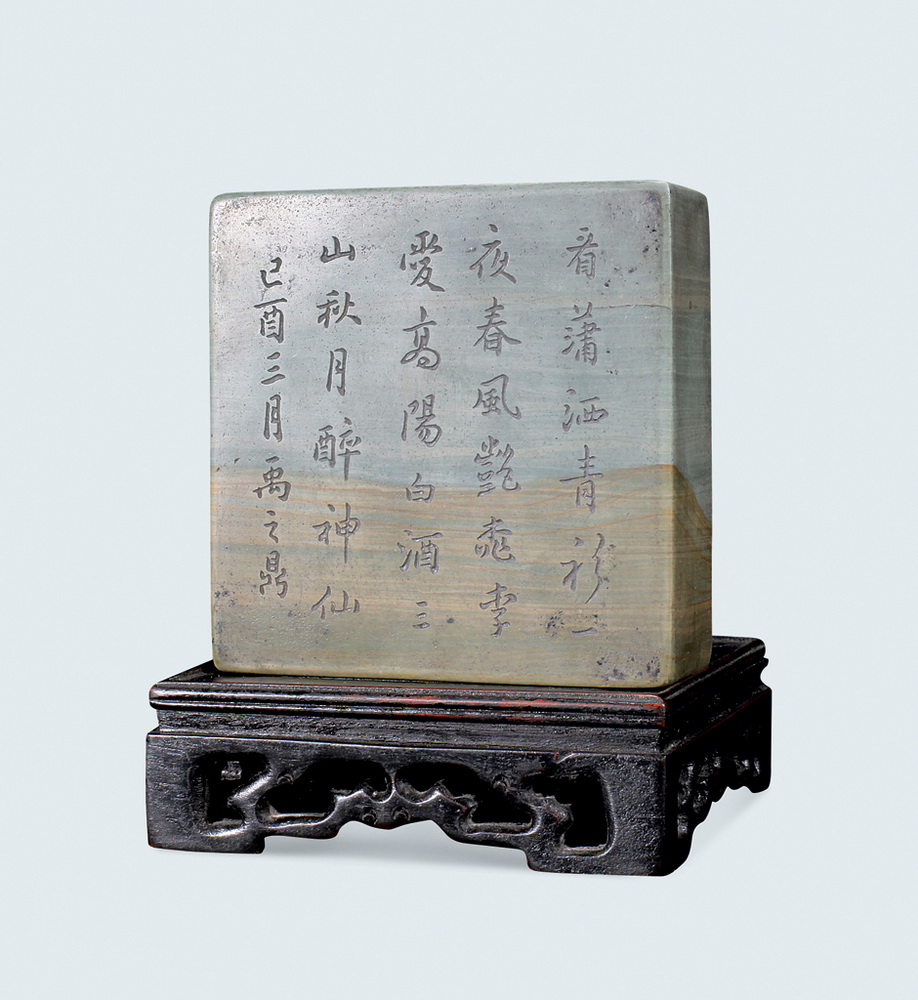 看瀟洒青衫一
夜春風豔桃李
愛高陽白酒三
山秋月醉神仙
己酉三月禹之鼎